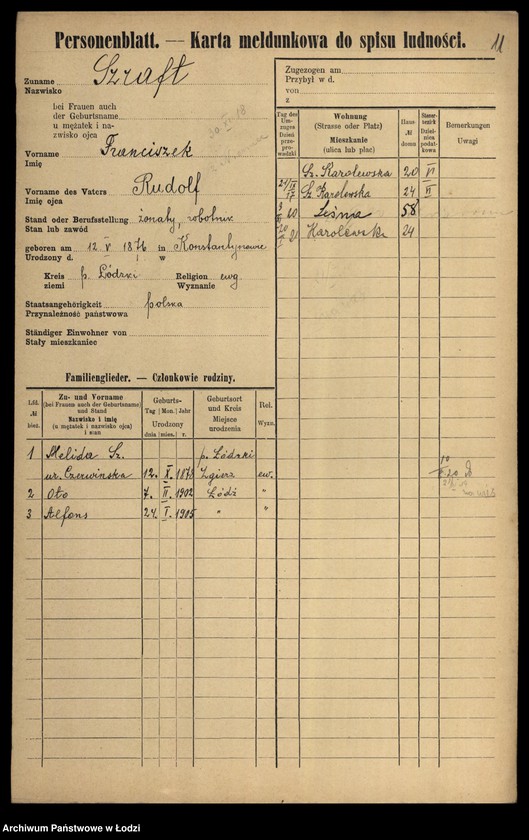 Personenblatt. — Karta meldunkowa do spisu ludności.
11
Zuname Szraft
Nazwisko
bei Frauen auch
der Geburtsname
u mężatek i na-
zwisko ojca
Vorname Franciszek
Imię
Vorname des Vaters Rudolf
Imię ojca
Stand oder Berufsstellung żonaty, robotnik
Stan lub zawód
geboren am 12 V 1876 in Konstantynowie
Urodzony d. w
Kreis p. Łódzki Religion ewg
ziemi Wyznanie
Staatsangehörigkeit polska
Przynależność państwowa
Ständiger Einwohner von
Stały mieszkaniec
Zugezogen am
Przybył w d.
von
z
Tag des Um-
zuges
Dzień
prze-
prowadzki
Wohnung
(Strasse oder Platz)
Mieszkanie
(ulica lub plac)
Haus-
№
domu
Steuer-
bezirk
Dziel-
nica
podat-
kowa
Bemerkungen
Uwagi
Sz. Karolewska 20 VI
Sz. Karolewska 24 VI
Leśna 58
Karolewsk 24
Familienglieder. — Członkowie rodziny.
Lfd.
№
bież.
Zu- und Vorname
(bei Frauen auch der Geburtsname)
und Stand
Nazwisko i imię
(u mężatek i nazwisko ojca)
i stan
Geburts-
Tag Mon. Jahr
Urodzony
dnia mies. r.
Geburtsort
und Kreis
Miejsce
urodzenia
Rel.
Wyzn.
1 Melida Sz. p. Łódzki
ur. Czerwińska 12. X. 1878 Zgierz ew.
2 Oto 7. II. 1902 Łódź "
3 Alfons 24. I. 1905 " "
Archiwum Państwowe w Łodzi